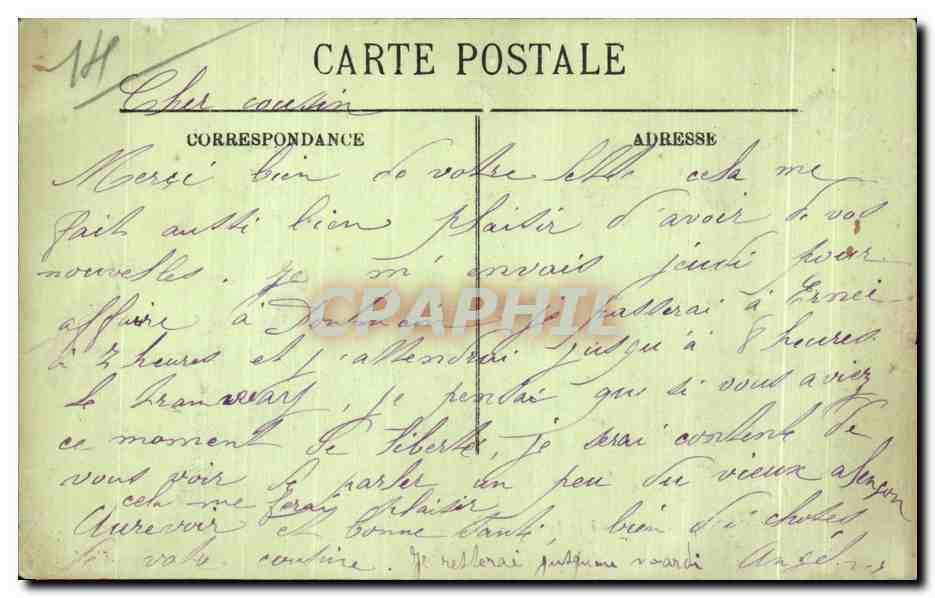 14
CARTE POSTALE
Cher cousin
CORRESPONDANCE
ADRESSE
Merçi bien de votre lettre cela me
fait aussi bien plaisir d'avoir de vos
nouvelles. Je m'envais jeudi pour
affaire à je passerai à Ernée
à 7 heures et j'attendrai jusqu'à 8 heures
le tramway, je pensai que si vous aviez
ce moment de liberté, je serai content de
vous voir de parler un peu du vieux alençon
cela me ferai plaisir
Aurevoir et bonne santé, bien des choses
de votre cousine. Je resterai jusquau mardi
CPAPHIL